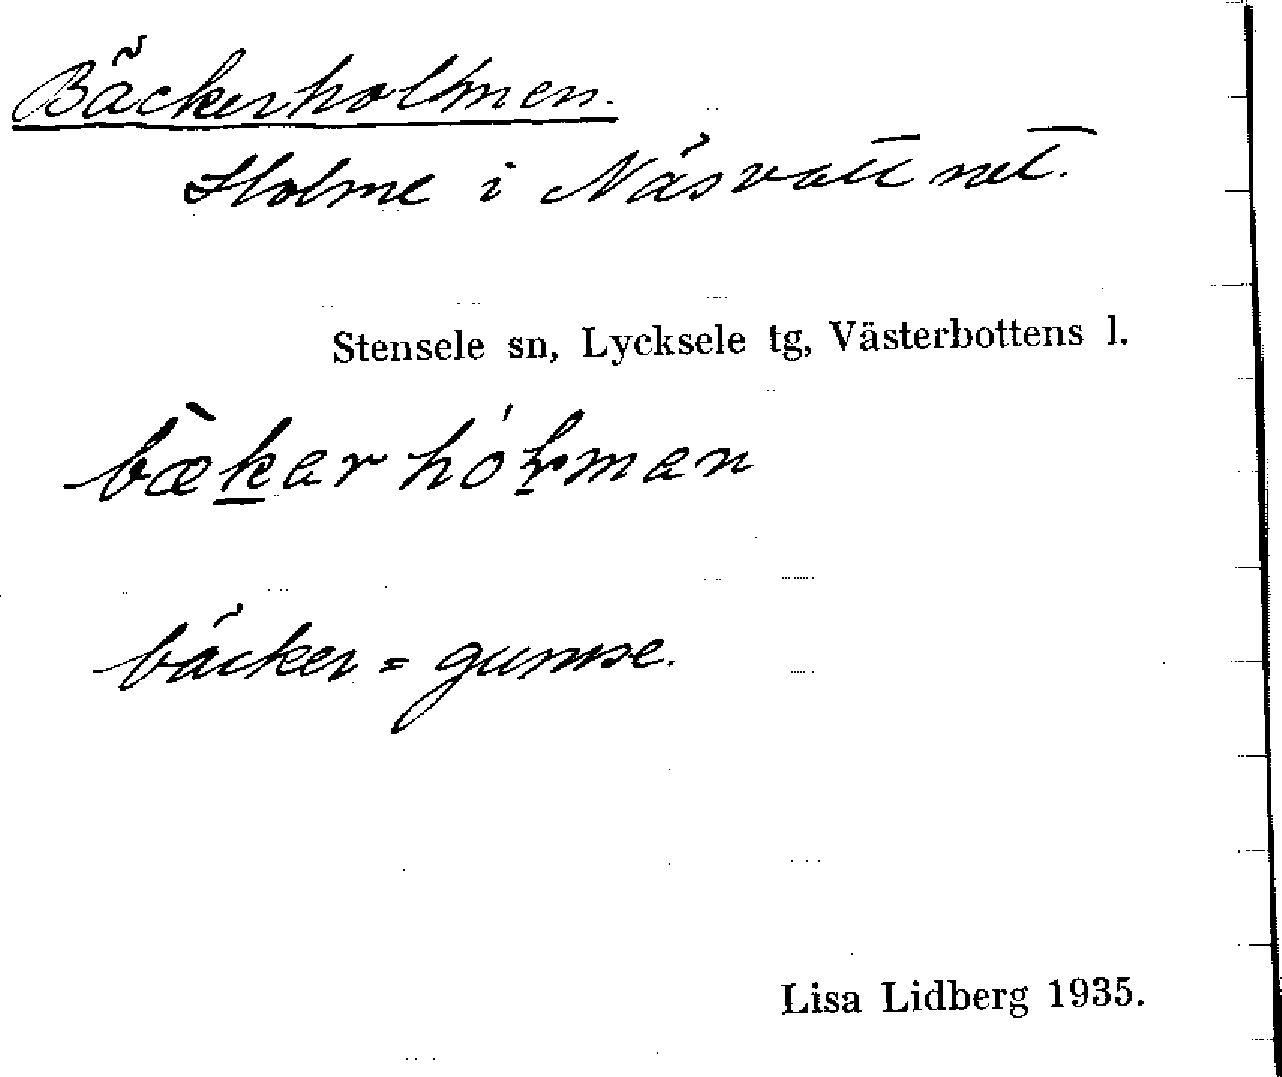 Bäckerholmen.
Holme i Näsvattnet.
Stensele sn, Lycksele tg, Västerbottens l.
bæ̀kar hóɫman
bäcker = gumse.
Lisa Lidberg 1935.